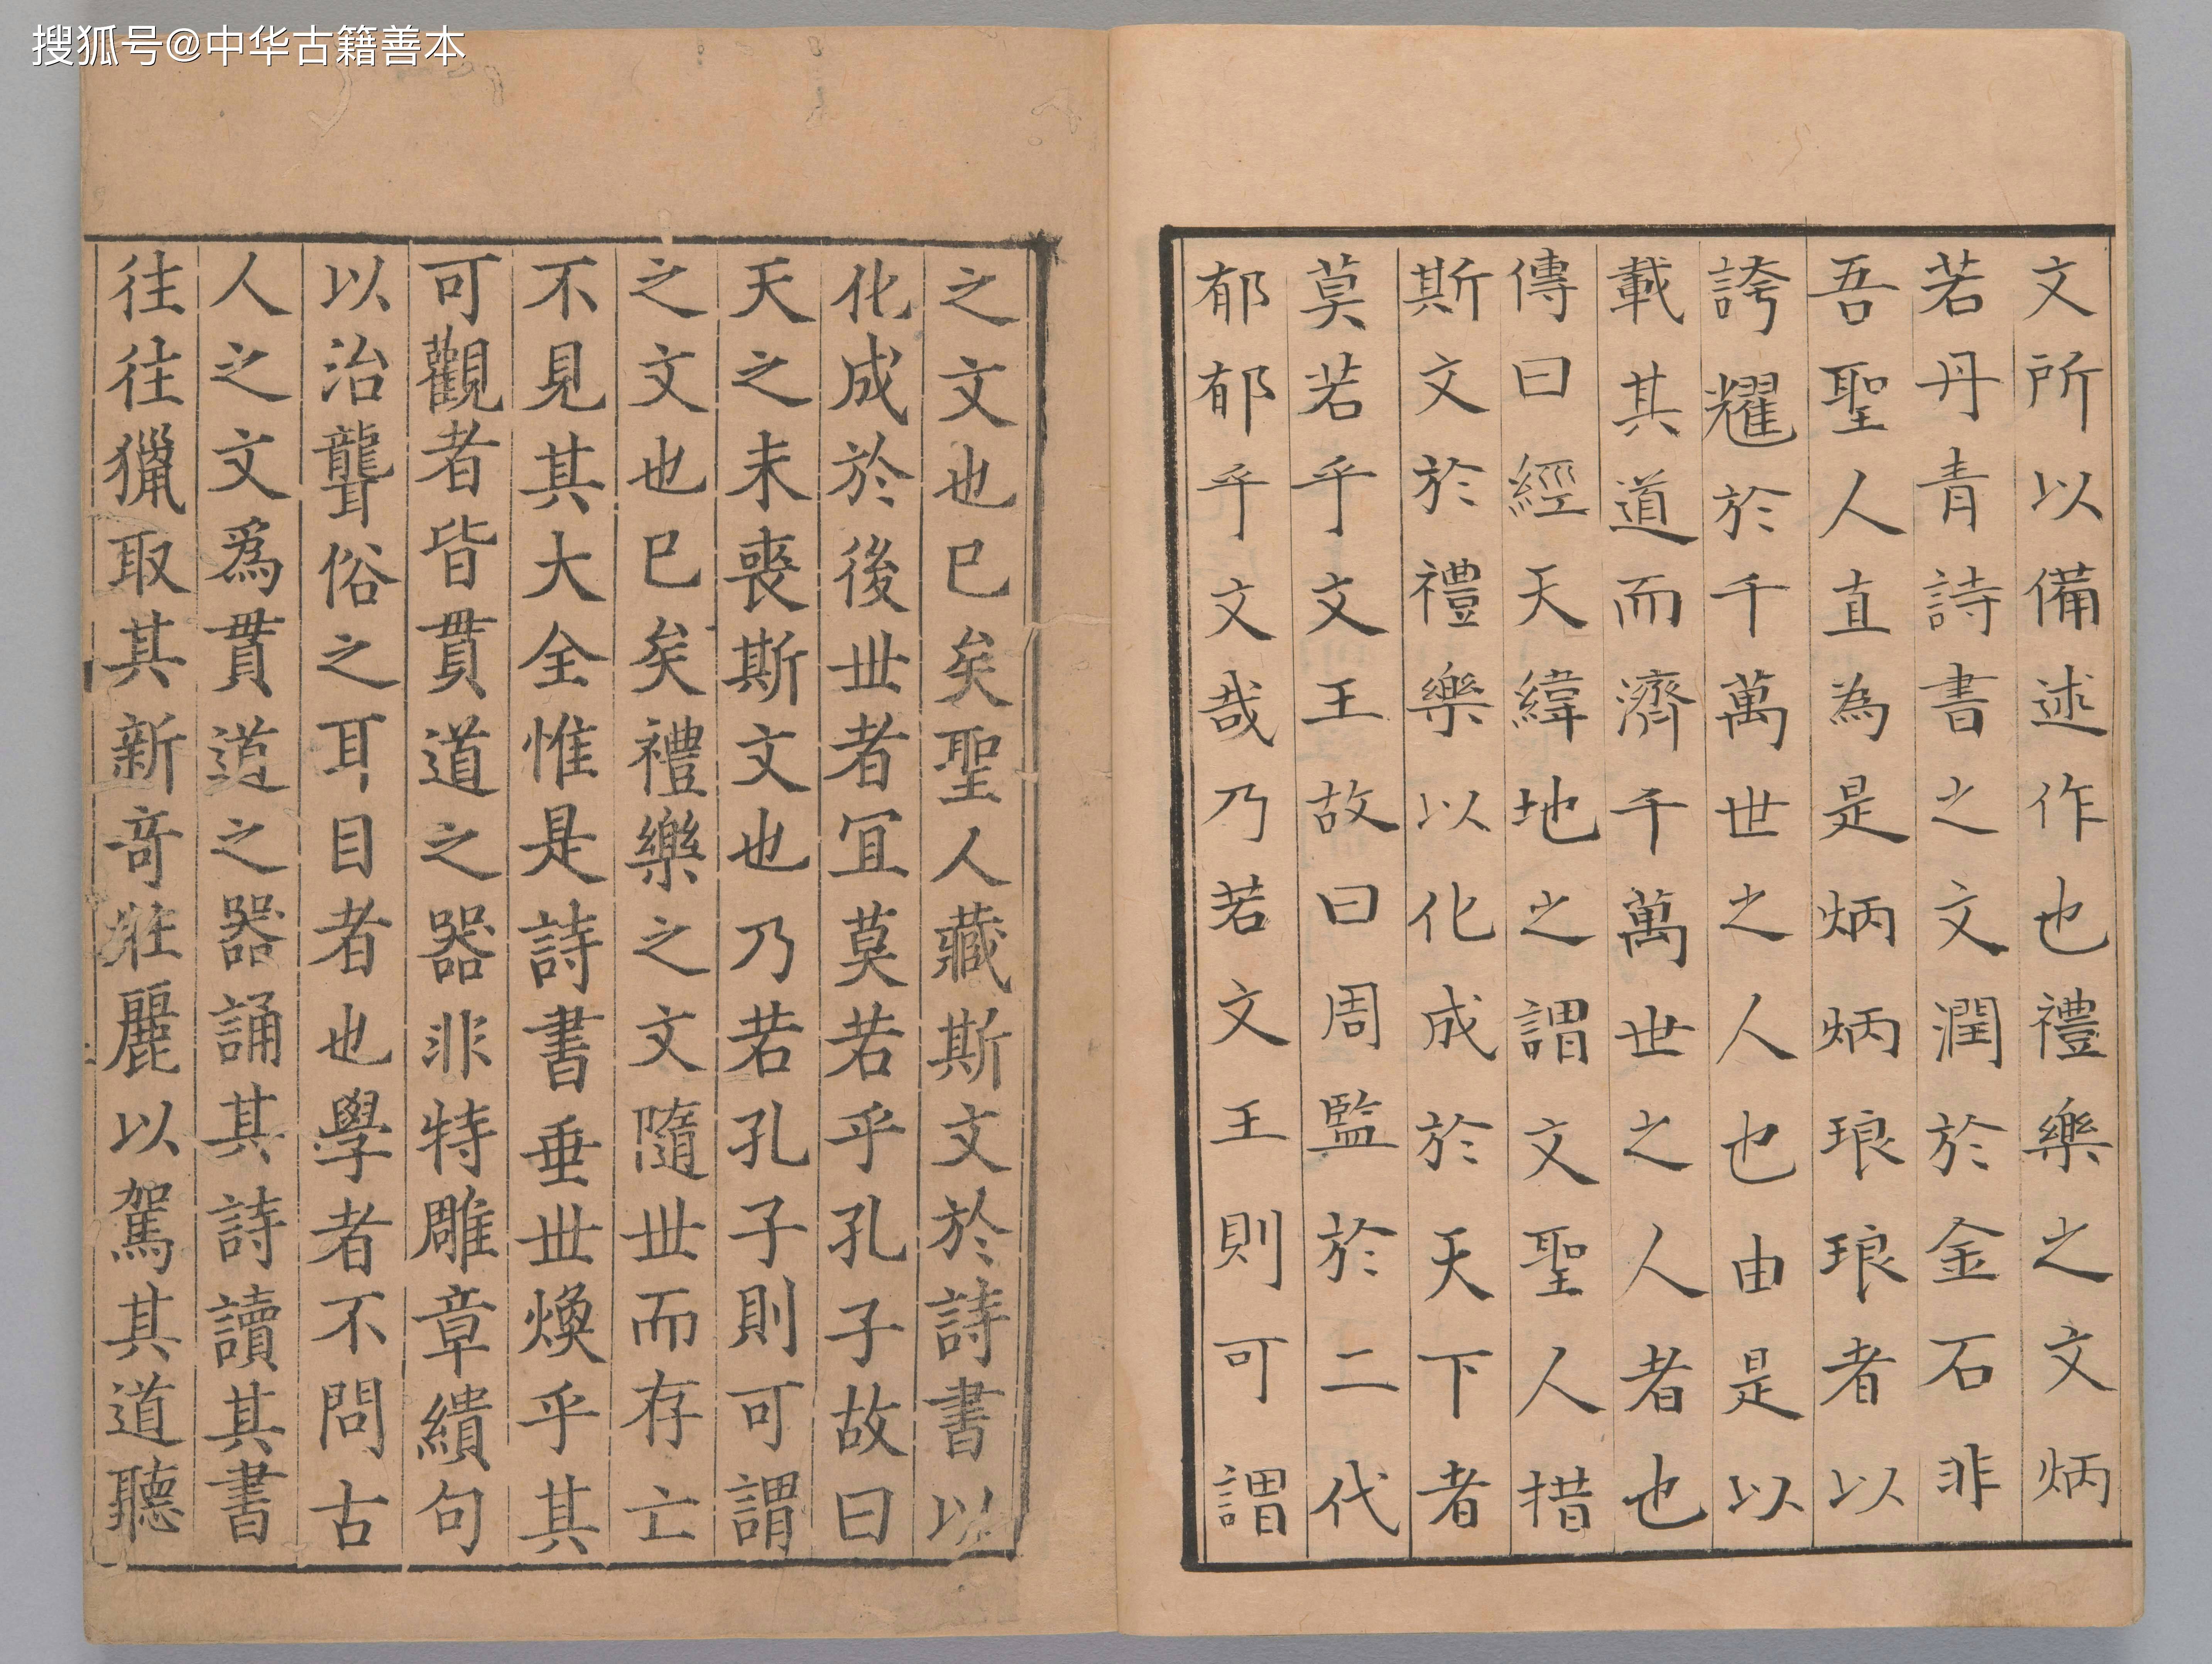 搜狐号@中华古籍善本
文所以備述作也禮樂之文炳
若丹青詩書之文潤於金石非
吾聖人直為是炳炳琅琅者以
誇耀於千萬世之人也由是以
載其道而濟千萬世之人者也
傳曰經天緯地之謂文聖人措
斯文於禮樂以化成於天下者
莫若乎文王故曰周監於二代
郁郁乎文哉乃若文王則可謂
之文也已矣聖人藏斯文於詩書以
化成於後世者宜莫若乎孔子故曰
天之未喪斯文也乃若孔子則可謂
之文也已矣禮樂之文隨世而存亡
不見其大全惟是詩書垂世煥乎其
可觀者皆貫道之器非特雕章繢句
以治聾俗之耳目者也學者不問古
人之文為貫道之器誦其詩讀其書
往往獵取其新奇壯麗以駕其道聽